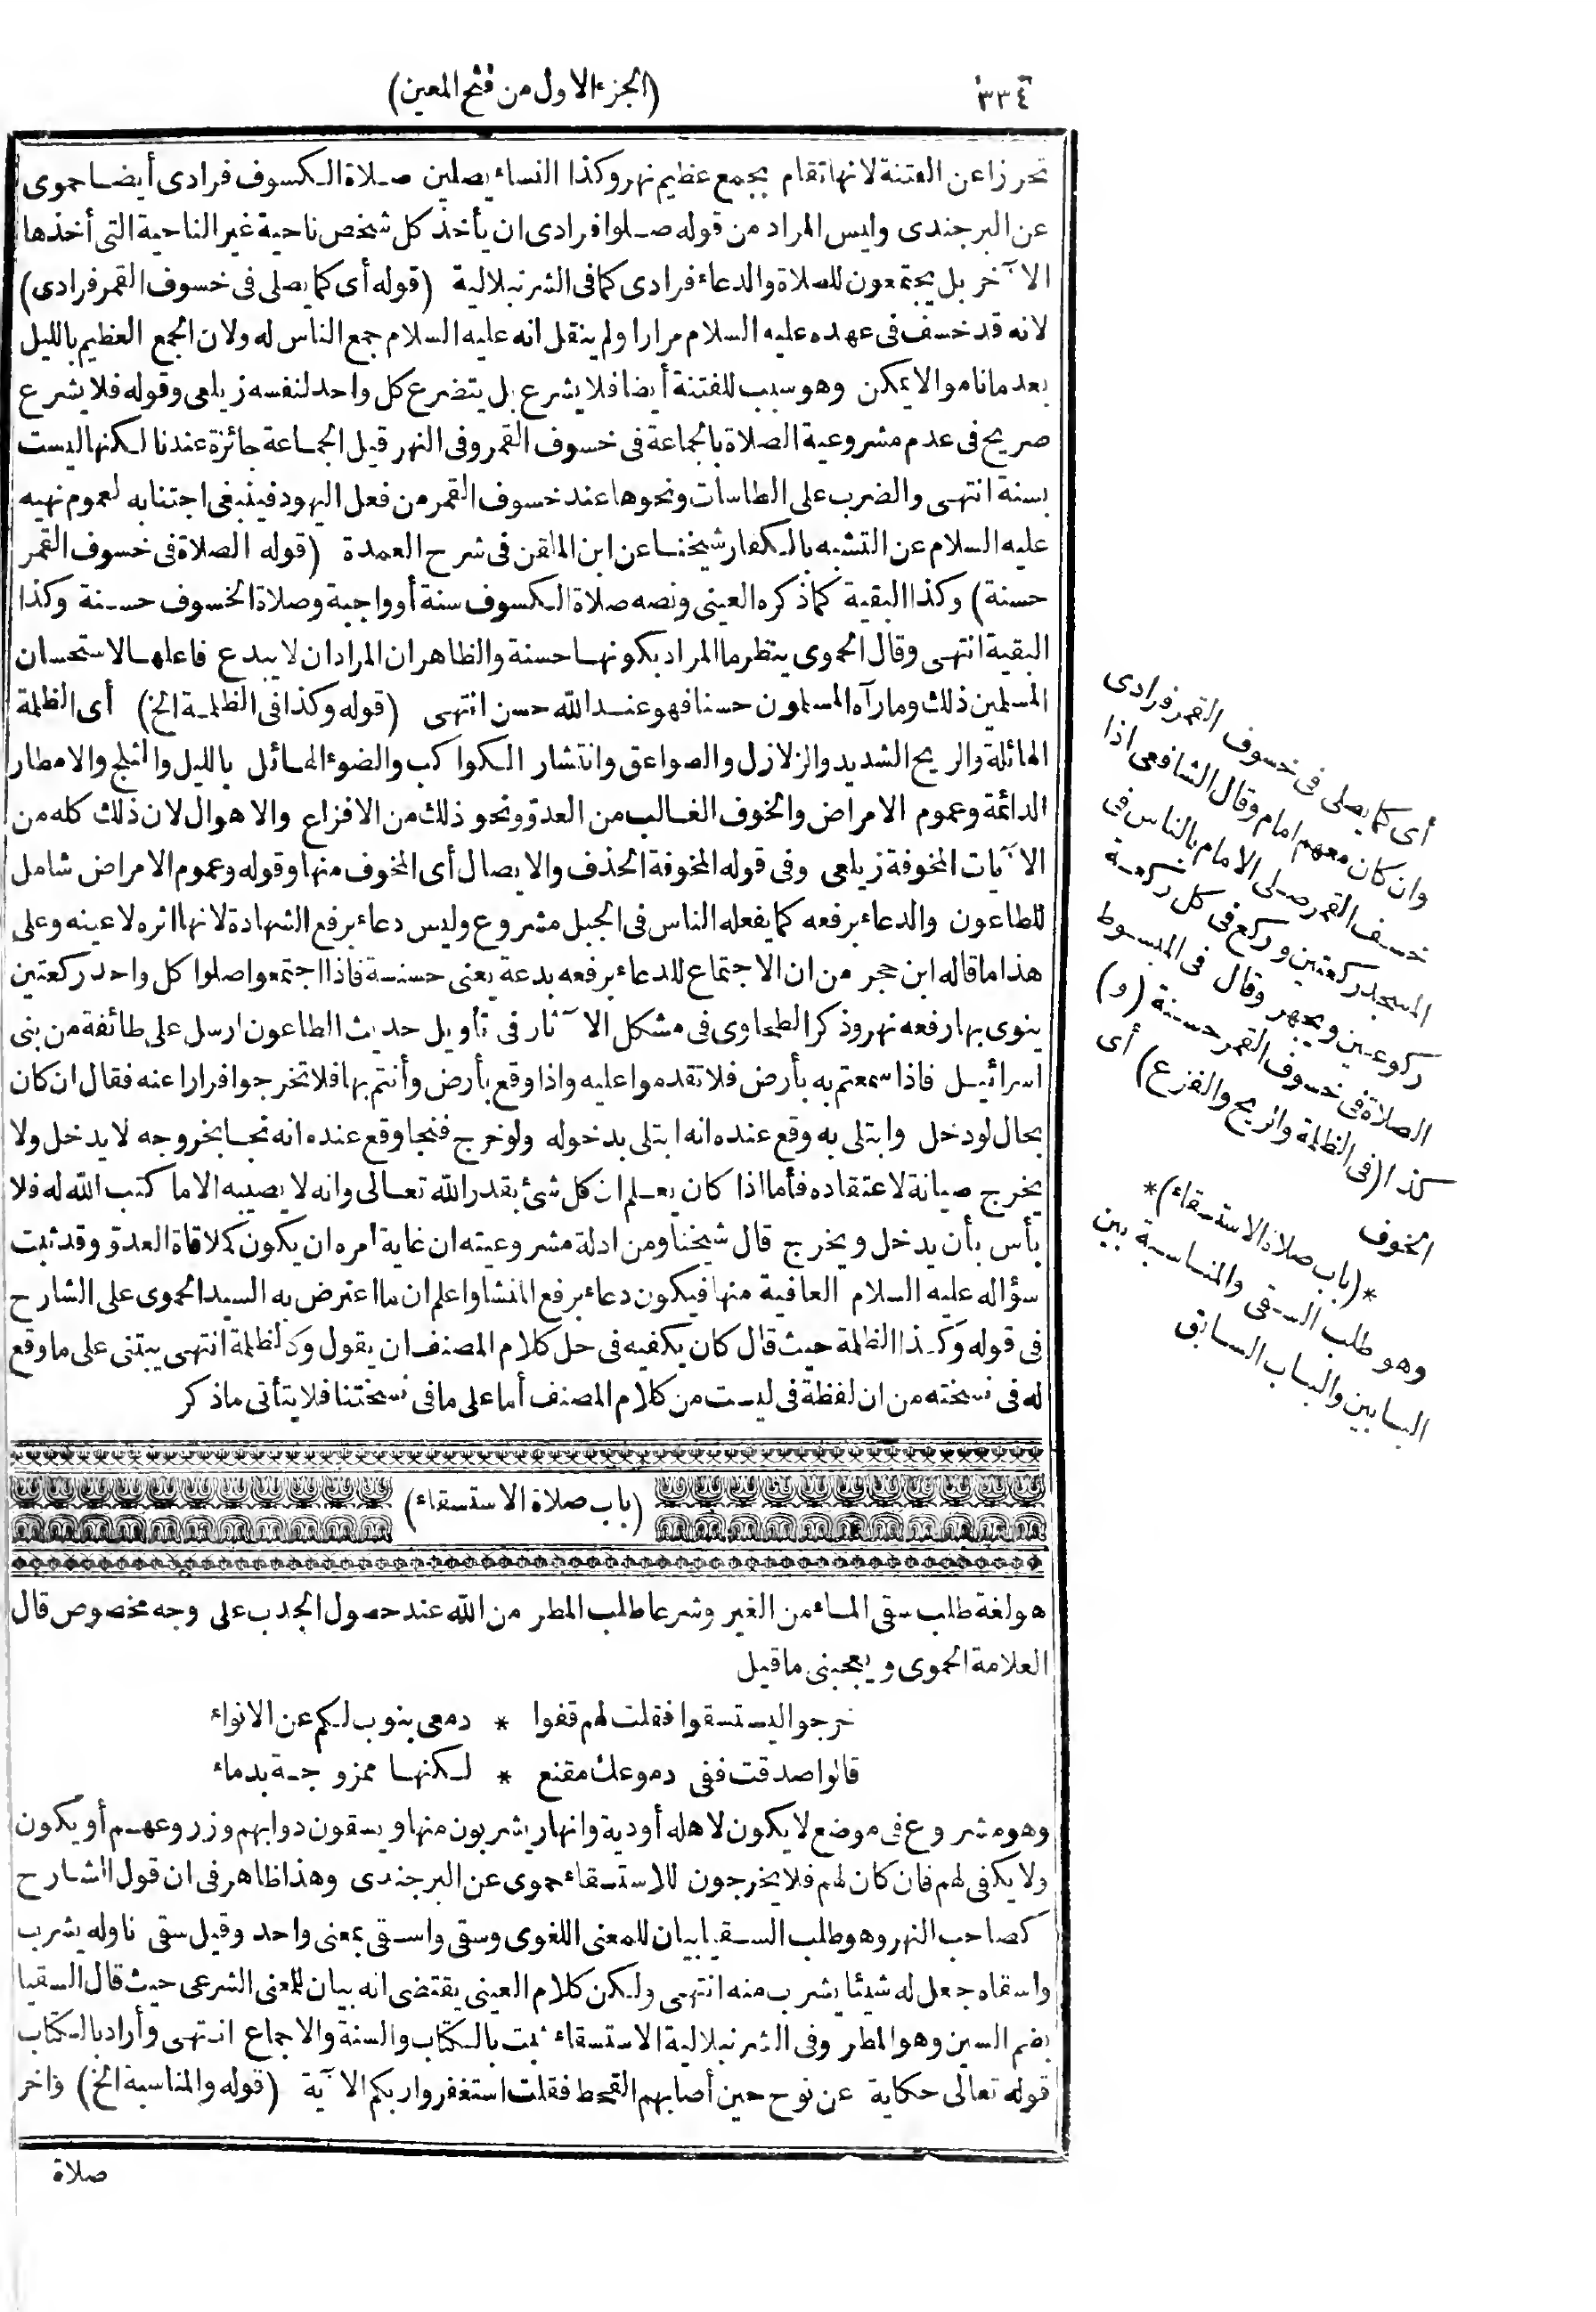 ٣٣٤
(الجزء الاول من فتح المعين)
تحرزا عن الفتنة لانها تقام بجمع عظيم نهر وكذا النساء يصلين صلاة الكسوف فرادى أيضا حموى
عن البرجندى وليس المراد من قوله صلوا فرادى ان يأخذ كل شخص ناحية غير الناحية التى أخذها
الآخر بل يجتمعون للصلاة والدعاء فرادى كما فى الشرنبلالية (قوله أى كما يصلى فى خسوف القمر فرادى)
لانه قد خسف فى عهده عليه السلام مرارا ولم ينقل انه عليه السلام جمع الناس له ولان الجمع العظيم بالليل
بعد ما ناموا لا يمكن وهو سبب للفتنة أيضا فلا يشرع بل يتضرع كل واحد لنفسه زيلعى وقوله فلا يشرع
صريح فى عدم مشروعية الصلاة بالجماعة فى خسوف القمر وفى النهر قيل الجماعة جائزة عندنا لكنها ليست
بسنة انتهى والضرب على الطاسات ونحوها عند خسوف القمر من فعل اليهود فينبغى اجتنابه لعموم نهيه
عليه السلام عن التشبه بالكفار شيخنا عن ابن الملقن فى شرح العمدة (قوله الصلاة فى خسوف القمر
حسنة) وكذا البقية كما ذكره العينى ونصه صلاة الكسوف سنة أو واجبة وصلاة الخسوف حسنة وكذا
البقية انتهى وقال الحموى ينظر ما المراد بكونها حسنة والظاهر ان المراد ان لا يبدع فاعلها لاستحسان
المسلمين ذلك وما رآه المسلمون حسنا فهو عند الله حسن انتهى (قوله وكذا فى الظلمة الخ) أى الظلمة
الهائلة والريح الشديد والزلازل والصواعق وانتشار الكواكب والضوء الهائل بالليل والثلج والامطار
الدائمة وعموم الامراض والخوف الغالب من العدو ونحو ذلك من الافزاع والاهوال لان ذلك كله من
الآيات المخوفة زيلعى وفى قوله المخوفة الحذف والايصال أى المخوف منها وقوله وعموم الامراض شامل
للطاعون والدعاء برفعه كما يفعله الناس فى الجبل مشروع وليس دعاء برفع الشهادة لانها اثره لا عينه وعلى
هذا ما قاله ابن حجر من ان الاجتماع للدعاء برفعه بدعة يعنى حسنة فاذا اجتمعوا صلوا كل واحد ركعتين
ينوى بها رفعه نهر وذكر الطحاوى فى مشكل الآثار فى تأويل حديث الطاعون ارسل على طائفة من بنى
اسرائيل فاذا سمعتم به بأرض فلا تقدموا عليه واذا وقع بأرض وأنتم بها فلا تخرجوا فرارا عنه فقال ان كان
بحال لو دخل وابتلى به وقع عنده انه ابتلى بدخوله ولو خرج فنجا وقع عنده انه نجا بخروجه لا يدخل ولا
يخرج صيانة لاعتقاده فأما اذا كان يعلم ان كل شئ بقدر الله تعالى وانه لا يصيبه الا ما كتب الله له فلا
بأس بأن يدخل ويخرج قال شيخنا ومن ادلة مشروعيته ان غاية امره ان يكون كملاقاة العدو وقد ثبت
سؤاله عليه السلام العافية منها فيكون دعاء برفع المنشا واعلم ان ما اعترض به السيد الحموى على الشارح
فى قوله وكذا الظلمة حيث قال كان يكفيه فى حل كلام المصنف ان يقول وكالظلمة انتهى يبتنى على ما وقع
له فى نسخته من ان لفظة فى ليست من كلام المصنف أما على ما فى نسختنا فلا يتأتى ما ذكر
(باب صلاة الاستسقاء)
هو لغة طلب سقى الماء من الغير وشرعا طلب المطر من الله عند حصول الجدب على وجه مخصوص قال
العلامة الحموى ويعجبنى ما قيل
خرجوا ليستسقوا فقلت لهم قفوا * دمعى ينوب لكم عن الانواء
قالوا صدقت ففى دموعك مقنع * لكنها ممزوجة بدماء
وهو مشروع فى موضع لا يكون لاهله أودية وانهار يشربون منها ويسقون دوابهم وزروعهم أو يكون
ولا يكفى لهم فان كان لهم فلا يخرجون للاستسقاء حموى عن البرجندى وهذا ظاهر فى ان قول الشارح
كصاحب النهر وهو طلب السقيا بيان للمعنى اللغوى وسقى واسقى بمعنى واحد وقيل سقى ناوله يشرب
واسقاه جعل له شيئا يشرب منه انتهى ولكن كلام العينى يقتضى انه بيان للمعنى الشرعى حيث قال السقيا
بضم السين وهو المطر وفى الشرنبلالية الاستسقاء ثبت بالكتاب والسنة والاجماع انتهى وأراد بالكتاب
قوله تعالى حكاية عن نوح حين أصابهم القحط فقلت استغفروا ربكم الآية (قوله والمناسبة الخ) واخر
صلاة
أى كما يصلى فى خسوف القمر فرادى
وان كان معهم امام وقال الشافعى اذا
خسف القمر صلى الامام بالناس فى
المسجد ركعتين وركع فى كل ركعة
ركوعين ويجهر وقال فى المبسوط
الصلاة فى خسوف القمر حسنة (و)
كذا (فى الظلمة والريح والفزع) أى
الخوف
*(باب صلاة الاستسقاء)*
وهو طلب السقى والمناسبة بين
البابين والباب السابق